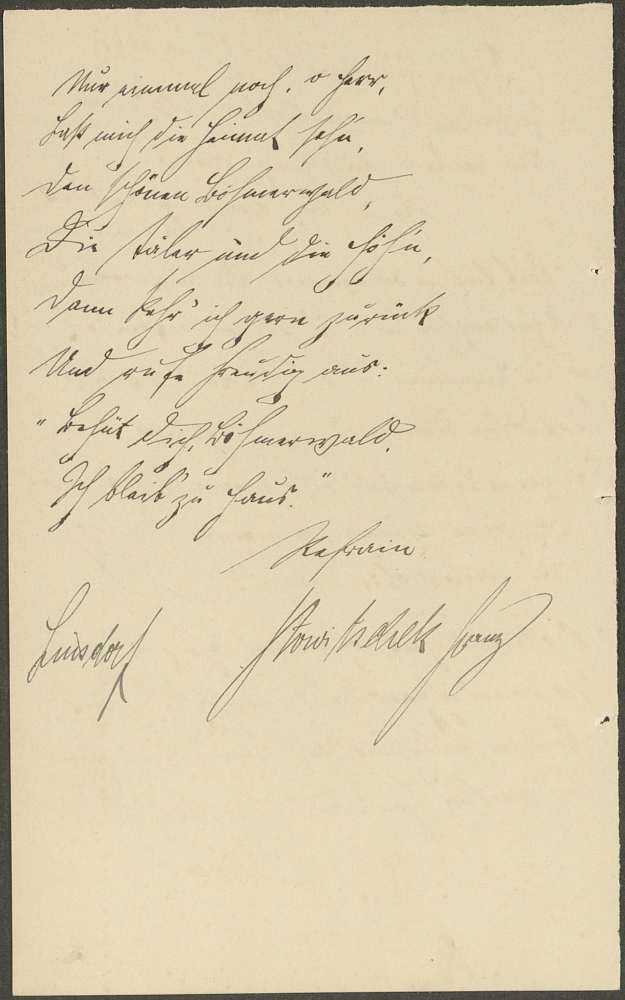 Nur einmal noch, o Herr,
Laß mich die Heimat sehn,
Den schönen Böhmerwald,
Die Täler und die Höh'n,
Dann kehr' ich gern zurück
Und rufe freudig aus:
"Behüt dich, Böhmerwald,
Ich bleib' zu Haus."
Refrain
Franz